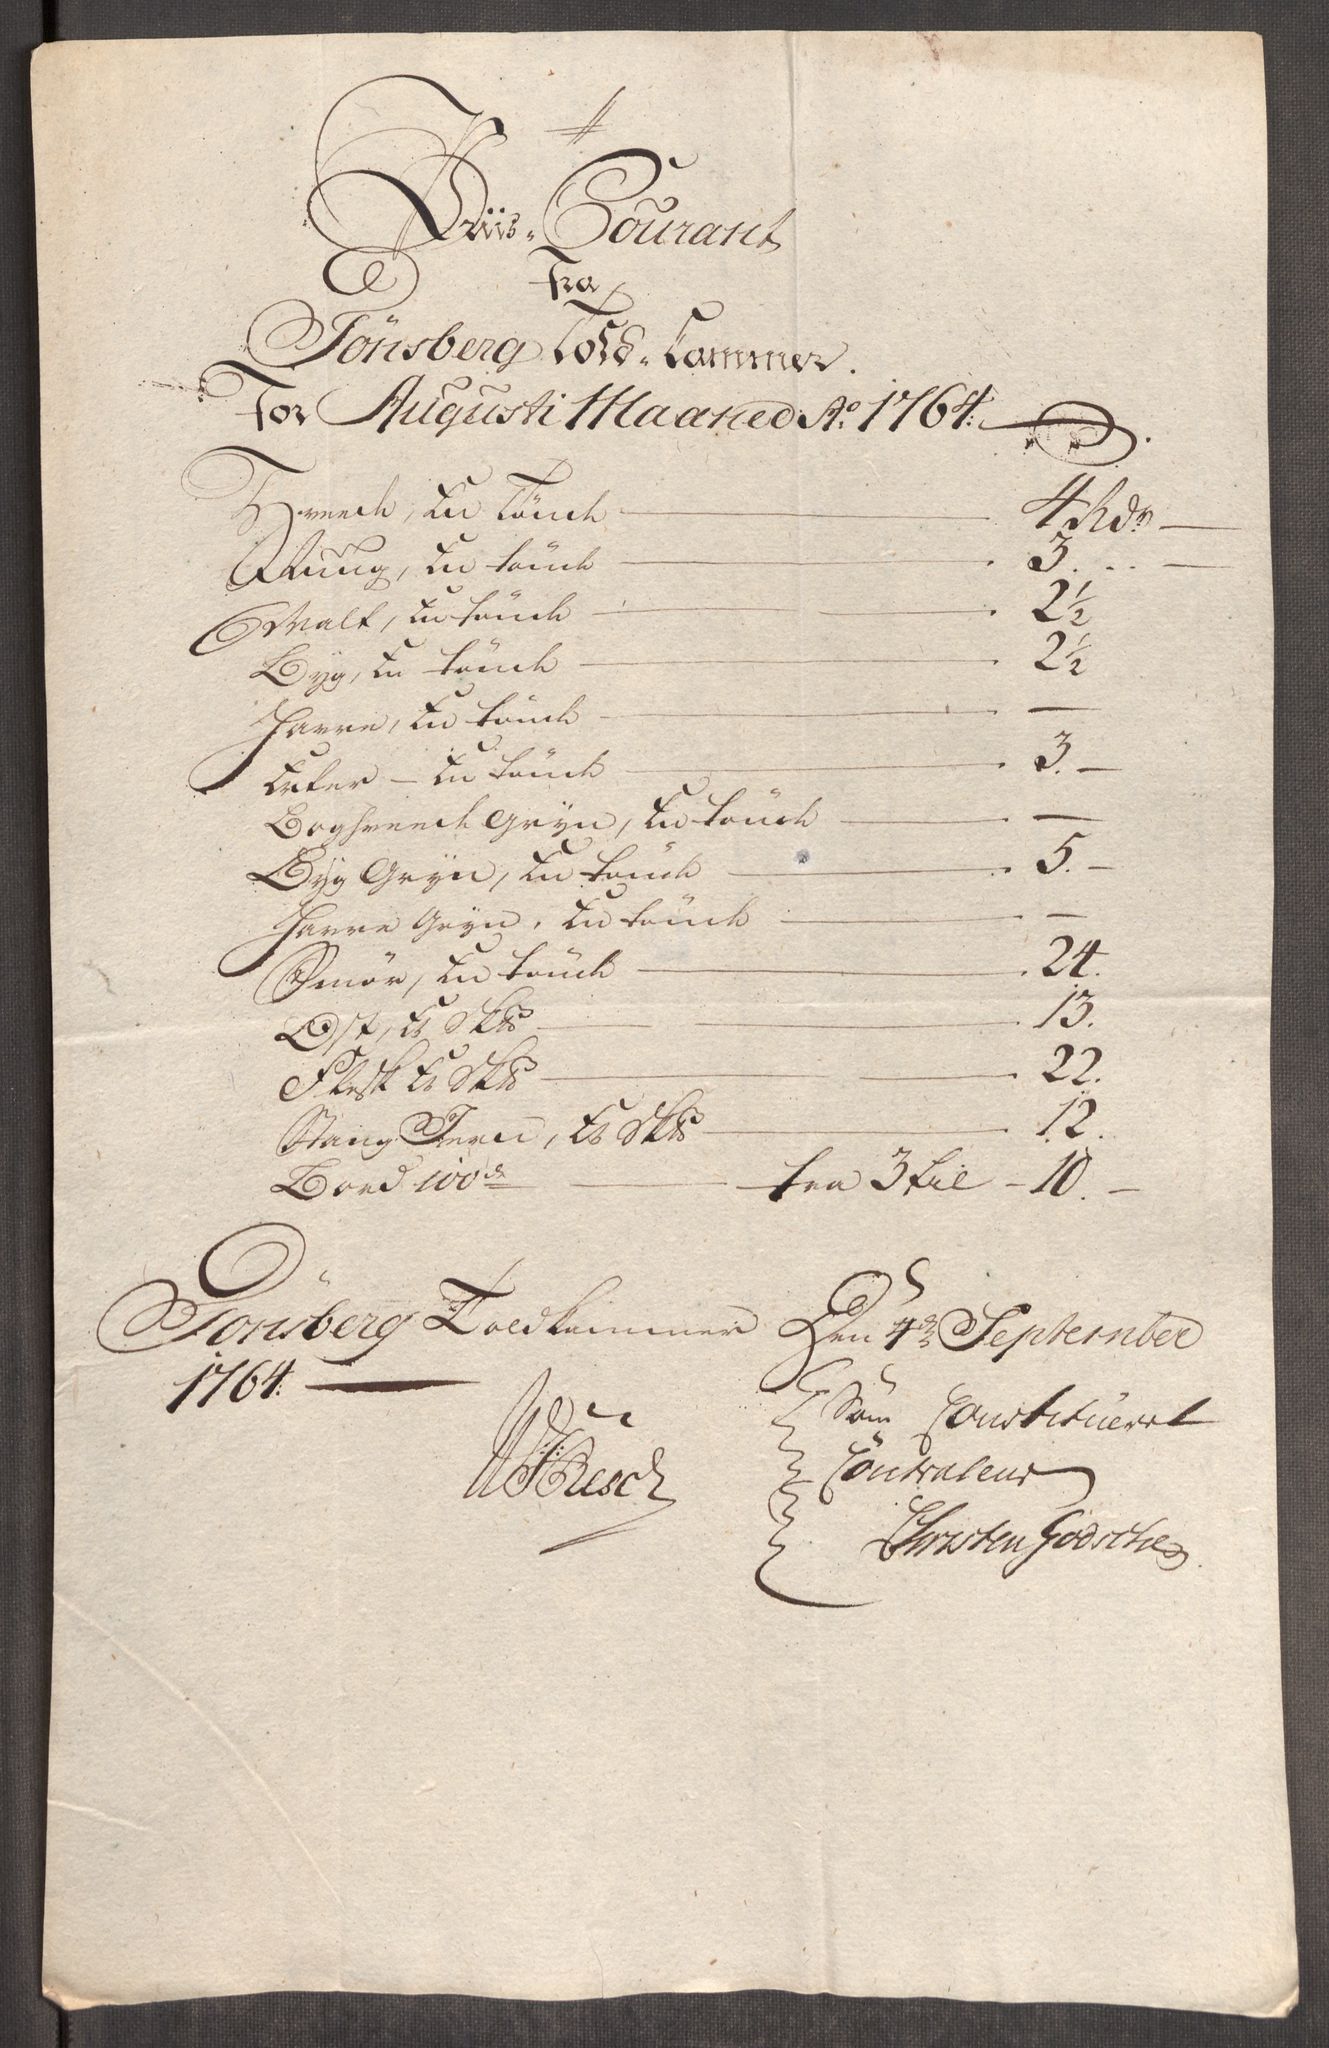 Priis-Courant
fra
Tönsberg Told-Cammer.
For Augusti Maaned Ao. 1764.
Hveede, En Tönde 4 Rdr
Rüug, En tönde 3.
Malt, En tönde 2½
Byg, En tönde 2½
Havre, En tönde —
Erter – En tönde 3. —
Boghveede Gryn, En tönde —
Byg Gryn, En tönde 5. —
Havre Gryn, En tönde —
Smör, En tönde 24.
Ost, Et Sk℔ 13.
Flesk Et Sk℔ 22.
Stang Jern, Et Sk℔ 12.
Bord 100de fra 3 til – 10. —
Tönsberg Toldkammer Den 4de September
1764.
Som Constitueret
Contraleur
Resch
Christen Godsche